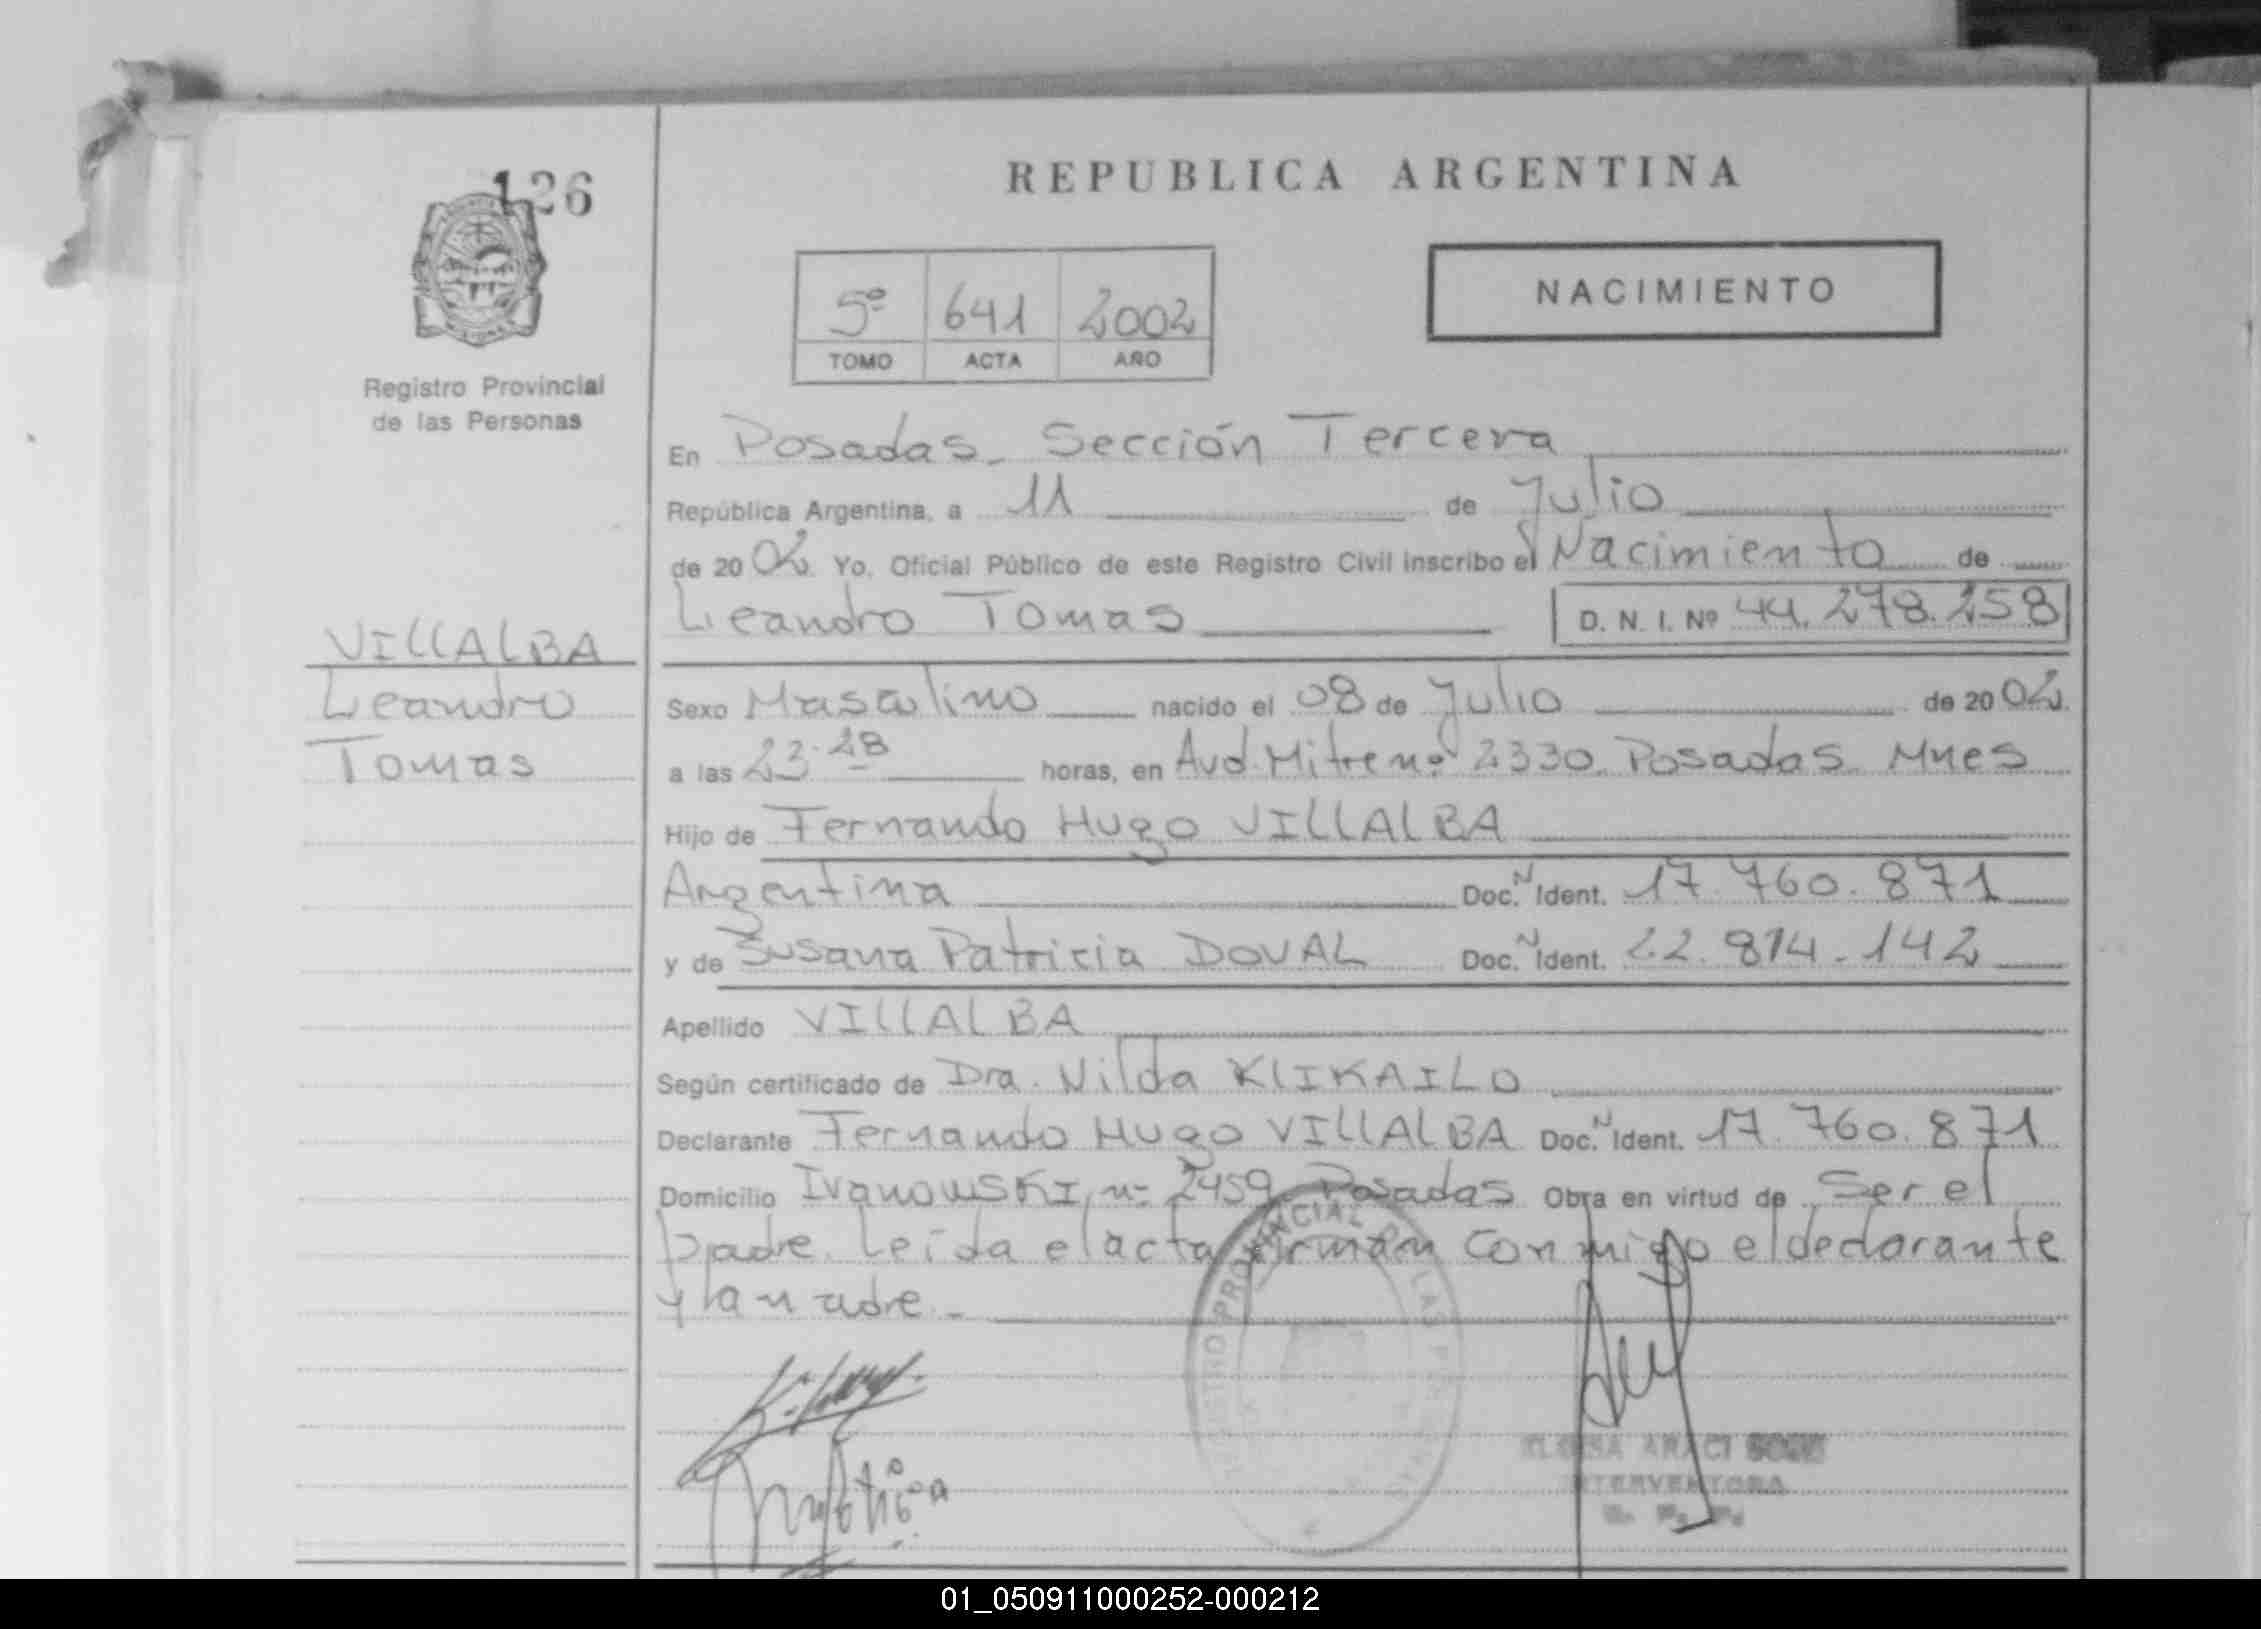 126
REPUBLICA ARGENTINA
NACIMIENTO
5º 641 2002
TOMO ACTA AÑO
Registro Provincial
de las Personas
En Posadas - Sección Tercera
República Argentina, a 11 de Julio
de 2002 Yo, Oficial Público de este Registro Civil inscribo el Nacimiento de
Leandro Tomas D. N. I. Nº 44.278.258
VILLALBA
Leandro
Tomas
Sexo Masculino nacido el 08 de Julio de 2002
a las 23.28 horas, en Avd. Mitre nº 2330 Posadas Mnes
Hijo de Fernando Hugo VILLALBA
Argentina Doc. N Ident. 17.760.871
y de Susana Patricia DOVAL Doc. N Ident. 22.814.142
Apellido VILLALBA
Según certificado de Dra. Nilda KLIKAILO
Declarante Fernando Hugo VILLALBA Doc. N Ident. 17.760.871
Domicilio Ivanowski nº 2459 Posadas Obra en virtud de Ser el
padre. Leída el acta firman conmigo el declarante
y la madre.-
REGISTRO PROVINCIAL DE LAS PERSONAS
ARACI
INTERVENTORA
01_050911000252-000212